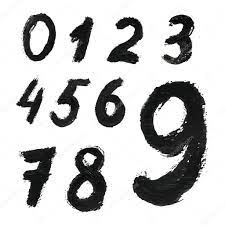 0 1 2 3
4 5 6 9
7 8